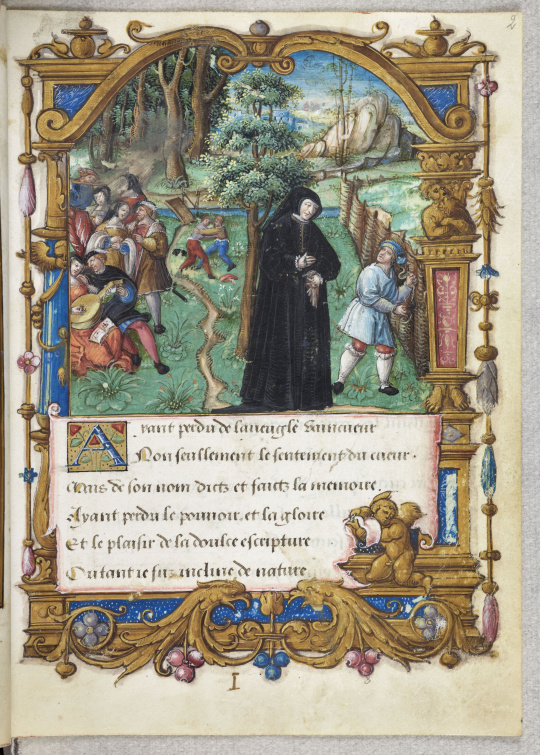 2
Ayant perdu de laueugle vaincueur
Non seullement le sentement du cueur
Mais de son nom dictz et faictz la memoire
Ayant perdu le pouuoir et la gloire
Et le plaisir de la doulce escripture
Ou tant ie fuz incline de nature
I